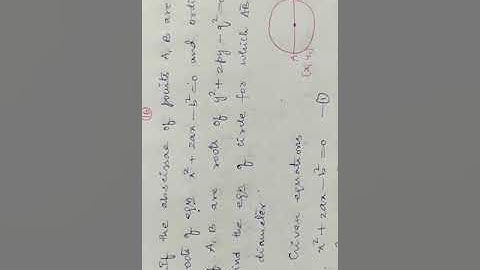 16
If the abscissae of points A, B are
roots of eqn x² + 2ax - b² = 0 and ordi
of A, B are roots of y² + 2py - q² =
find the eqn of circle for which AB
diameter.
A
(x₁, y₁)
Given equations
x² + 2ax - b² = 0 - ①